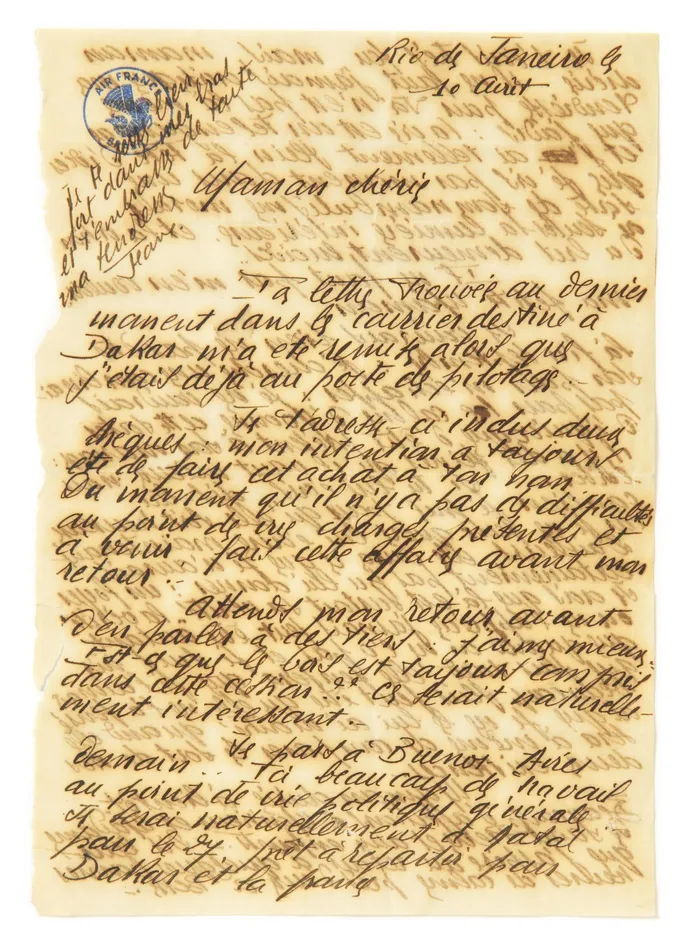 Rio de Janeiro le
10 Avril
AIR FRANCE
Je te serre bien
fort dans mes bras
et t'embrasse de toute
ma tendresse
Jean
Maman chérie
Ta lettre trouvée au dernier
moment dans le courrier destiné à
Dakar m'a été remise alors que
j'étais déjà au poste de pilotage.
Je t'adresse ci inclus deux
chèques : mon intention a toujours
été de faire cet achat à ton nom
Du moment qu'il n'y a pas de difficultés
au point de vue charges présentes et
à venir fait cette affaire avant mon
retour..
Attends mon retour avant
d'en parler à des tiers. j'aime mieux.
Est ce que le bois est toujours compris
dans cette cession ?? ce serait naturelle-
ment intéressant.
Je pars à Buenos Aires
demain.. beaucoup de travail
au point de vue politique générale
Je serai naturellement à Natal
pour le 27 prêt à repartir pour
Dakar et la